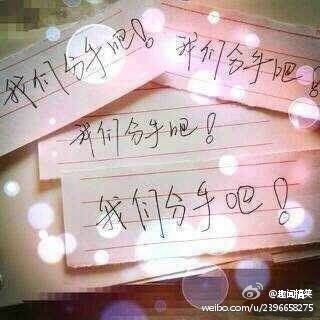 我们分手吧！
我们分手吧！
我们分手吧！
我们分手吧！
@趣闻搞笑
weibo.com/u/2396658275